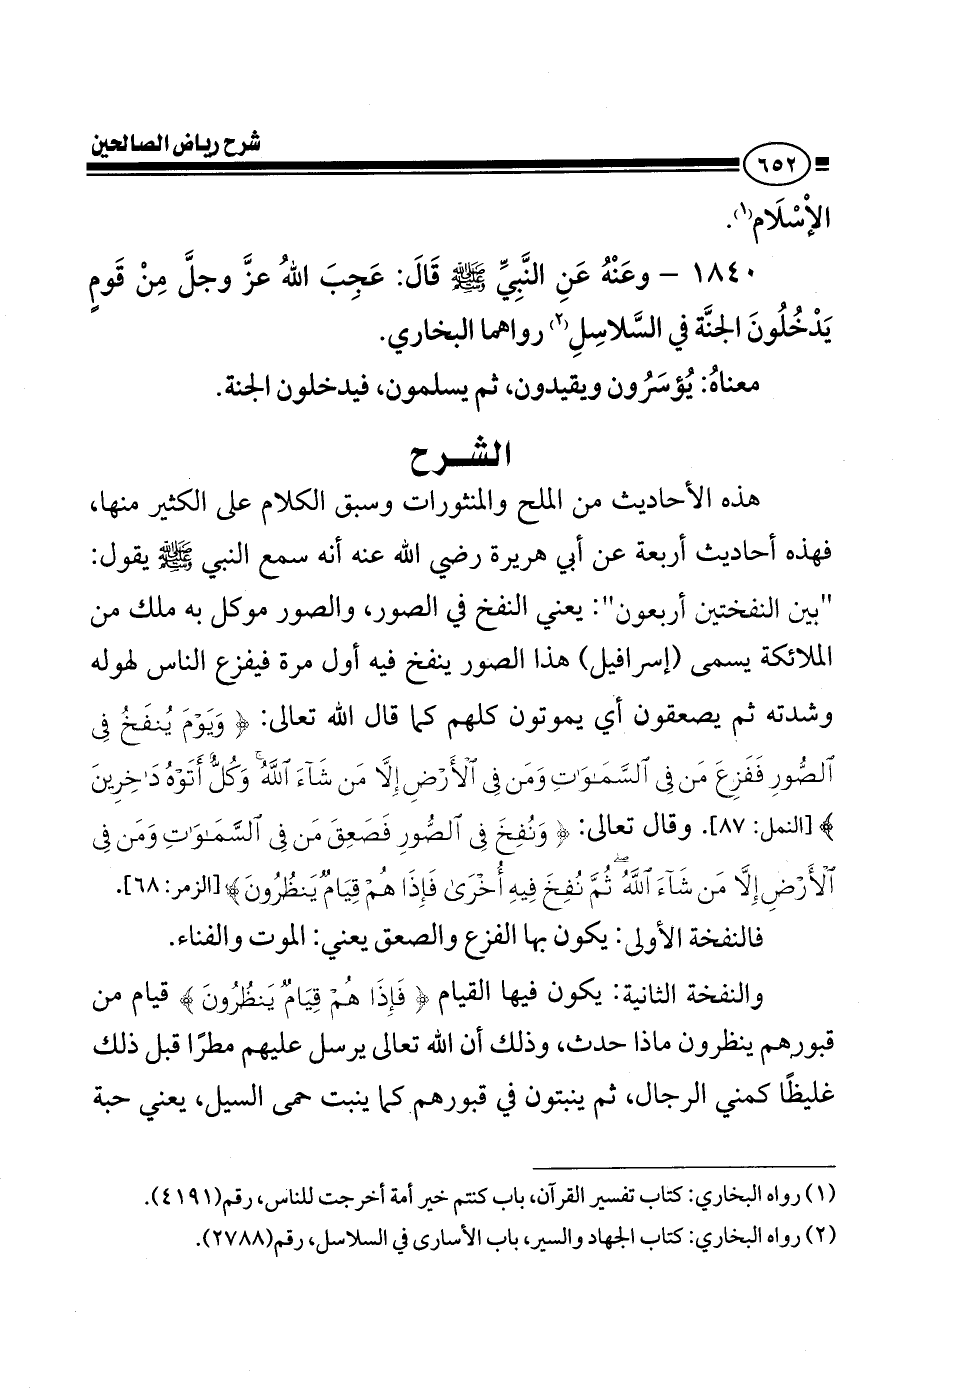 شرح رياض الصالحين
٦٥٢
الإْسْلَام(١).
١٨٤٠ – وعَنْهُ عَنِ النَّبِيِّ ﷺ قَالَ: عَجِبَ اللهُ عزَّ وجلَّ مِنْ قَومٍ
يَدْخُلُونَ الجنَّة في السَّلاسِلِ(٢) رواهما البخاري.
معناهُ: يُؤسَرُون ويقيدون، ثم يسلمون، فيدخلون الجنة.
الشرح
هذه الأحاديث من الملح والمنثورات وسبق الكلام على الكثير منها،
فهذه أحاديث أربعة عن أبي هريرة رضي الله عنه أنه سمع النبي ﷺ يقول:
"بين النفختين أربعون": يعني النفخ في الصور، والصور موكل به ملك من
الملائكة يسمى (إسرافيل) هذا الصور ينفخ فيه أول مرة فيفزع الناس لهوله
وشدته ثم يصعقون أي يموتون كلهم كما قال الله تعالى: ﴿ وَيَوْمَ يُنفَخُ فِى
ٱلصُّورِ فَفَزِعَ مَن فِى ٱلسَّمَـٰوَٰتِ وَمَن فِى ٱلْأَرْضِ إِلَّا مَن شَآءَ ٱللَّهُ ۚ وَكُلٌّ أَتَوْهُ دَٰخِرِينَ
﴾ [النمل: ٨٧]. وقال تعالى: ﴿ وَنُفِخَ فِى ٱلصُّورِ فَصَعِقَ مَن فِى ٱلسَّمَـٰوَٰتِ وَمَن فِى
ٱلْأَرْضِ إِلَّا مَن شَآءَ ٱللَّهُ ۖ ثُمَّ نُفِخَ فِيهِ أُخْرَىٰ فَإِذَا هُمْ قِيَامٌ يَنظُرُونَ﴾ [الزمر: ٦٨].
فالنفخة الأولى: يكون بها الفزع والصعق يعني: الموت والفناء.
والنفخة الثانية: يكون فيها القيام ﴿ فَإِذَا هُمْ قِيَامٌ يَنظُرُونَ ﴾ قيام من
قبورهم ينظرون ماذا حدث، وذلك أن الله تعالى يرسل عليهم مطرًا قبل ذلك
غليظًا كمني الرجال، ثم ينبتون في قبورهم كما ينبت حمى السيل، يعني حبة
(١) رواه البخاري: كتاب تفسير القرآن، باب كنتم خير أمة أخرجت للناس، رقم(٤١٩١).
(٢) رواه البخاري: كتاب الجهاد والسير، باب الأسارى في السلاسل، رقم(٢٧٨٨).